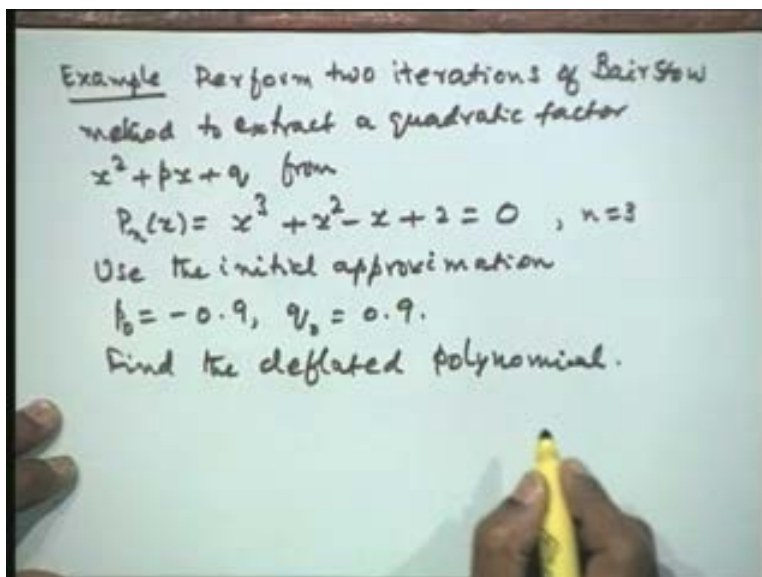 Example Perform two iterations of Bairstow
method to extract a quadratic factor
x² + px + q from
Pₙ(x) = x³ + x² - x + 2 = 0 , n=3
Use the initial approximation
p₀ = -0.9, q₀ = 0.9.
Find the deflated polynomial.